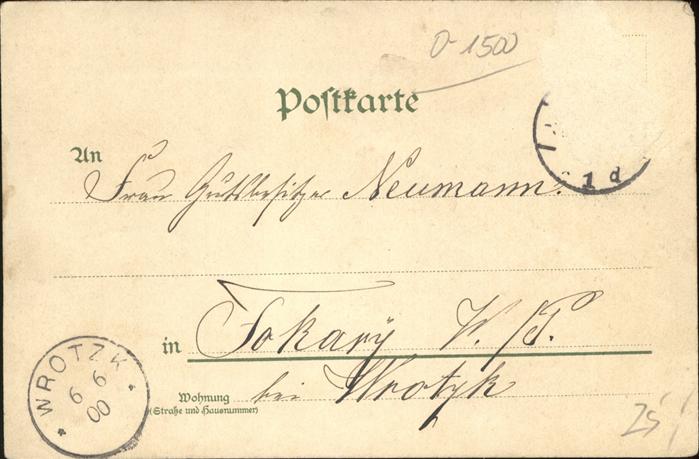 0-1500
Postkarte
An
Frau Gutsbesitzer Neumann.
1 d
in Tokary W./P.
bei Wrotzk
Wohnung
(Straße und Hausnummer)
WROTZK
6 6
00
25